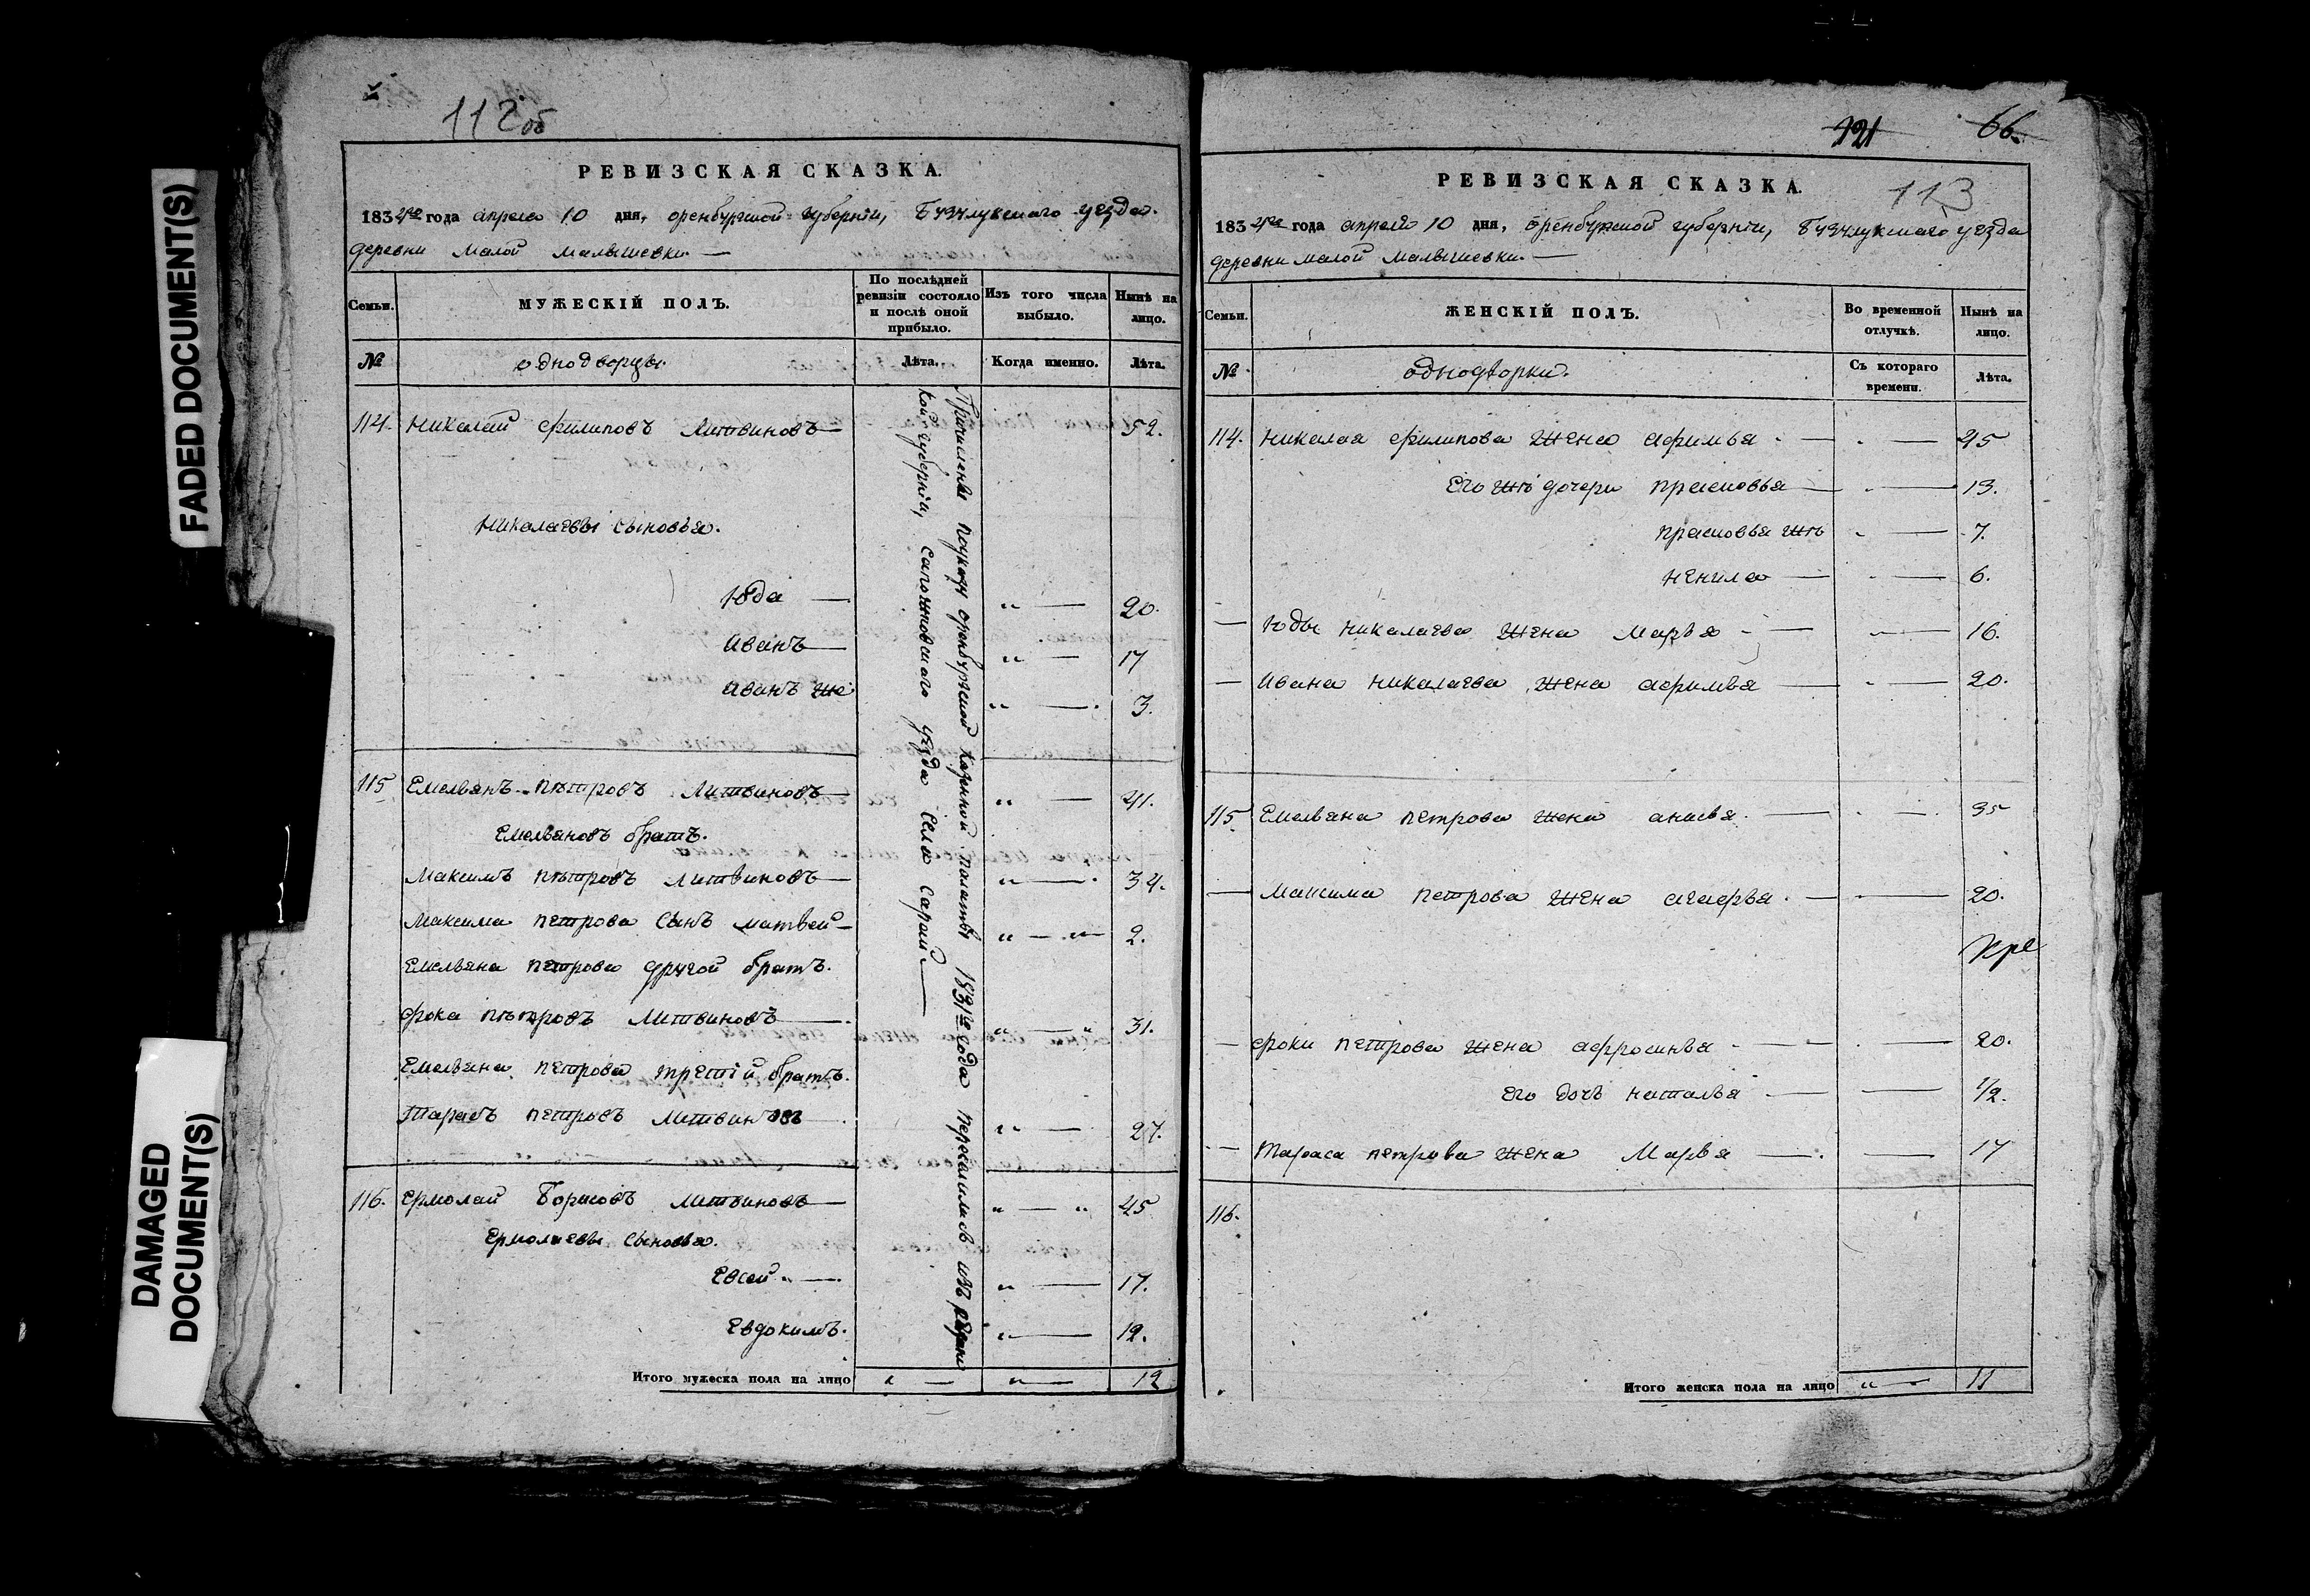 FADED DOCUMENT(S)
DAMAGED
DOCUMENT(S)
112об
РЕВИЗСКАЯ СКАЗКА.
1834го года апреля 10 дня, оренбургской губернiи, Бузулукскаго уезда.
деревни малой малышевки. —
Семьи.
МУЖЕСКІЙ ПОЛЪ.
По послѣдней ревизіи состояло и послѣ оной прибыло.
Изъ того числа выбыло.
Нынѣ на лицо.
№
однодворцы.
Лѣта.
Когда именно.
Лѣта.
Причислены поуказу оренбургской казенной палаты 1831го года переселились изъ рязанс
кой губернiи, сапожковскаго уезда села сараи —
114. Николай филиповъ Литвиновъ — 52.
Николаевы сыновья.
Юда — " — 20.
Иванъ — " — 17
Иванъ же " — 3.
115 Емельянъ петровъ Литвиновъ — " — 41.
Емельяновъ братъ.
Максимъ петровъ Литвиновъ — " — 34.
Максима петрова сынъ матвей — " — " — 2.
Емельяна петрова другой братъ.
фока петровъ Литвиновъ — " — " 31.
Емельяна петрова третiй братъ.
Тарасъ петровъ Литвиновъ — " — 27.
116. Ермолай Борисовъ литвиновъ — " — " 45
Ермолаевы сыновья.
Евсей " — " — 17.
Евдокимъ. " — 12.
Итого мужеска пола на лицо " — " — 12
121 66.
113
РЕВИЗСКАЯ СКАЗКА.
1834го года апреля 10 дня, оренбургской губернiи, Бузулукскаго уезда
деревни малой малышевки. —
Семьи.
ЖЕНСКІЙ ПОЛЪ.
Во временной отлучкѣ.
Нынѣ на лицо.
№
однодворки.
Съ котораго времени.
Лѣта.
114. Николая филипова жена афимья . — . — 45
Его жъ дочери прасковья — . — 13.
прасковья жъ . — 7.
ненила — . — 6.
— Юды николаева жена марья . — " — 16.
— Ивана николаева жена афимья — . — 20.
115. Емельяна петрова жена анисья . — . — . 35
— Максима петрова жена агафья . — . — 20.
— фоки петрова жена афросинья . — . — 20.
его дочь наталья . — — 1/2.
— Тараса петрова жена Марья — . — 17
116.
Итого женска пола на лицо " — 11